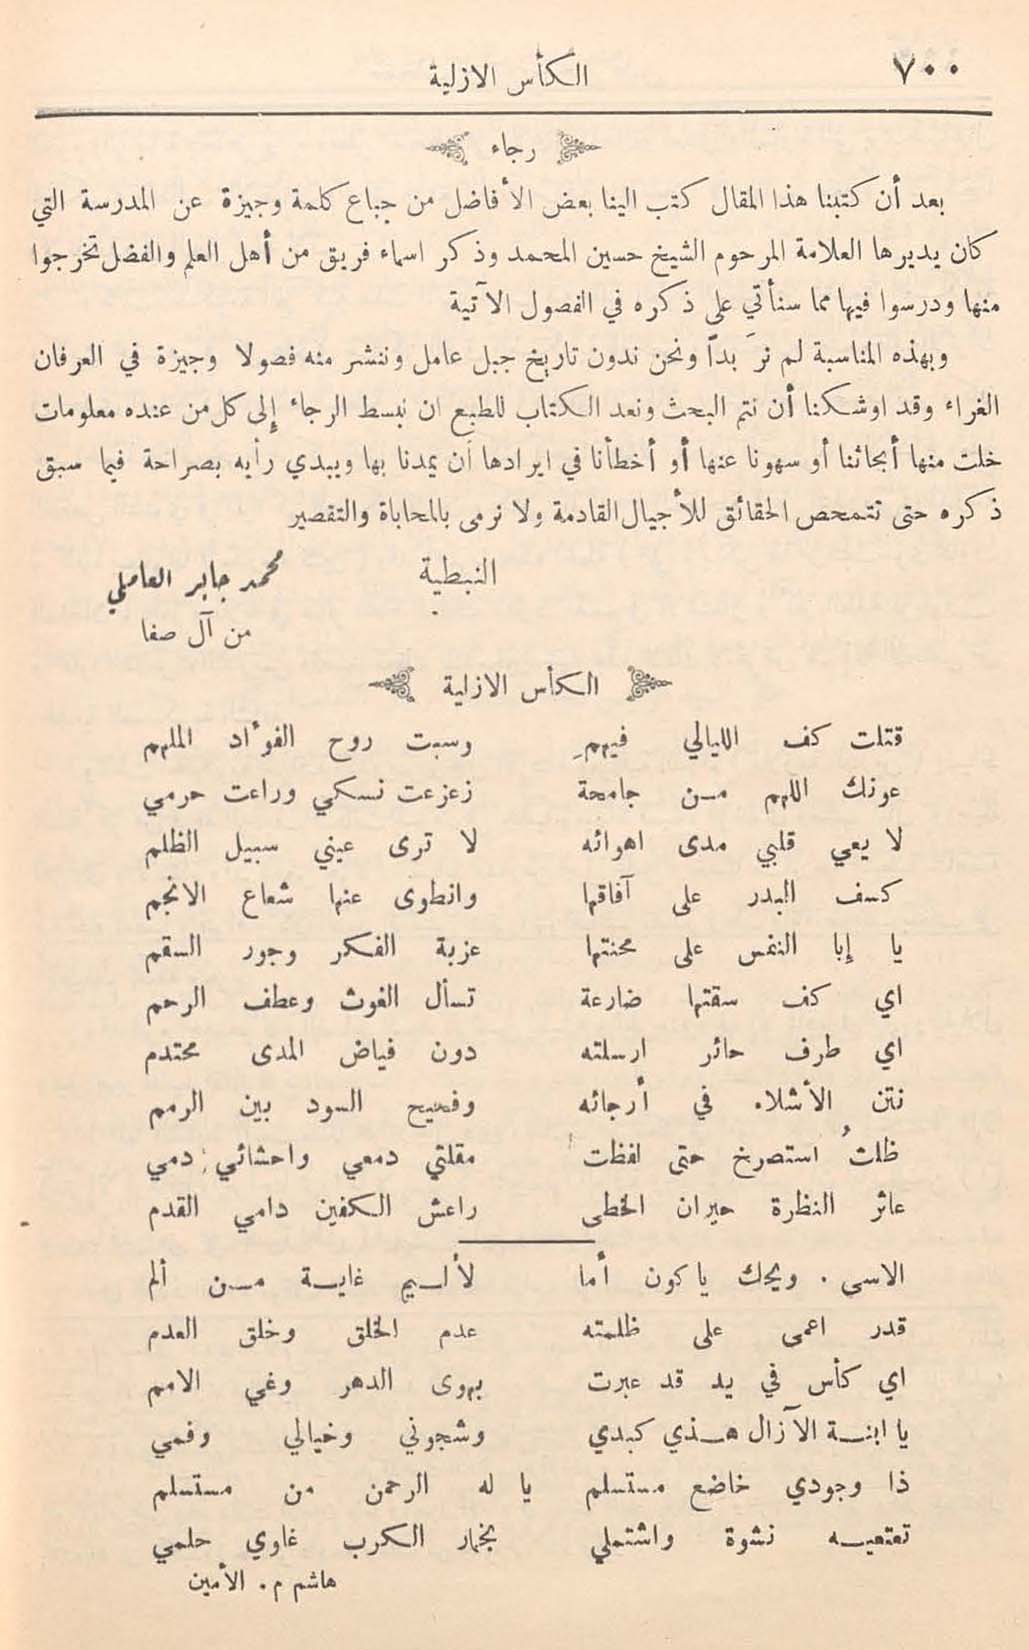 ٧٠٠
الكأس الازلية
رجاء
بعد أن كتبنا هذا المقال كتب الينا بعض الأفاضل من جباع كلمة وجيزة عن المدرسة التي
كان يديرها العلامة المرحوم الشيخ حسين المحمد وذكر اسماء فريق من أهل العلم والفضل تخرجوا
منها ودرسوا فيها مما سنأتي على ذكره في الفصول الآتية
وبهذه المناسبة لم نرَ بداً ونحن ندون تاريخ جبل عامل وننشر منه فصولا وجيزة في العرفان
الغراء وقد اوشكنا أن نتم البحث ونعد الكتاب للطبع ان نبسط الرجاء إلى كل من عنده معلومات
خلت منها أبحاثنا أو سهونا عنها أو أخطأنا في ايرادها أن يمدنا بها ويبدي رأيه بصراحة فيما سبق
ذكره حتى تتمحص الحقائق للأجيال القادمة ولا نرمى بالمحاباة والتقصير
النبطية محمد جابر العاملي
من آل صفا
الكأس الازلية
قتلت كف الليالي فيهمِ وسبت روح الفؤاد الملهم
عونك اللهم من جامحة زعزعت نسكي وراعت حرمي
لا يعي قلبي مدى اهوائه لا ترى عيني سبيل الظلم
كسف البدر على آفاقها وانطوى عنها شعاع الانجم
يا إبا النفس على محنتها عزبة الفكر وجور السقم
اي كف سقتها ضارعة تسأل الغوث وعطف الرحم
اي طرف حائر ارسلته دون فياض المدى محتدم
نتن الأشلاء في أرجائه وفحيح السود بين الرمم
ظلتُ استصرخ حتى لفظت مقلتي دمعي واحشائي دمي
عاثر النظرة حيران الخطى راعش الكفين دامي القدم
الاسى . ويحك يا كون أما لأليم غاية من ألم
قدر اعمى على ظلمته عدم الخلق وخلق العدم
اي كأس في يد قد عبرت بهوى الدهر وغي الامم
يا ابنة الآزال هذي كبدي وشجوني وخيالي وفمي
ذا وجودي خاضع مستسلم يا له الرحمن من مستسلم
تعتعيه نشوة واشتملي بخمار الكرب غاوي حلمي
هاشم م. الأمين